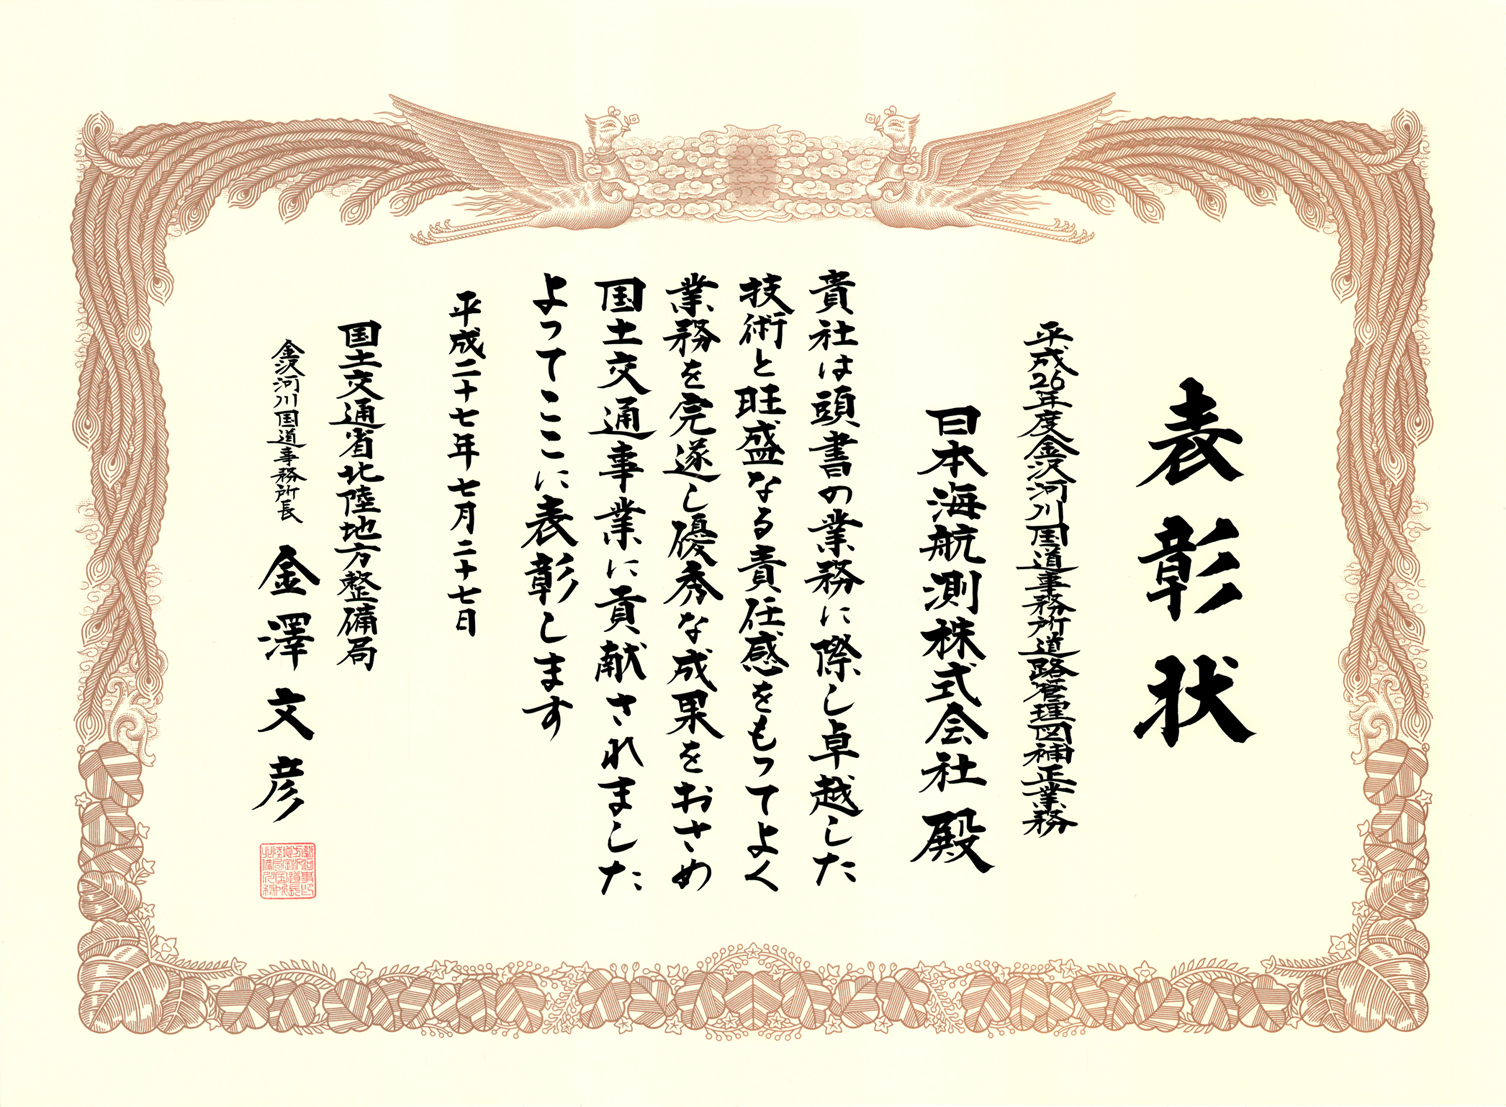 表彰状
平成26年度金沢河川国道事務所道路管理図補正業務
日本海航測株式会社 殿
貴社は頭書の業務に際し卓越した
技術と旺盛なる責任感をもってよく
業務を完遂し優秀な成果をおさめ
国土交通事業に貢献されました
よってここに表彰します
平成二十七年七月二十七日
国土交通省北陸地方整備局
金沢河川国道事務所長 金澤文彦